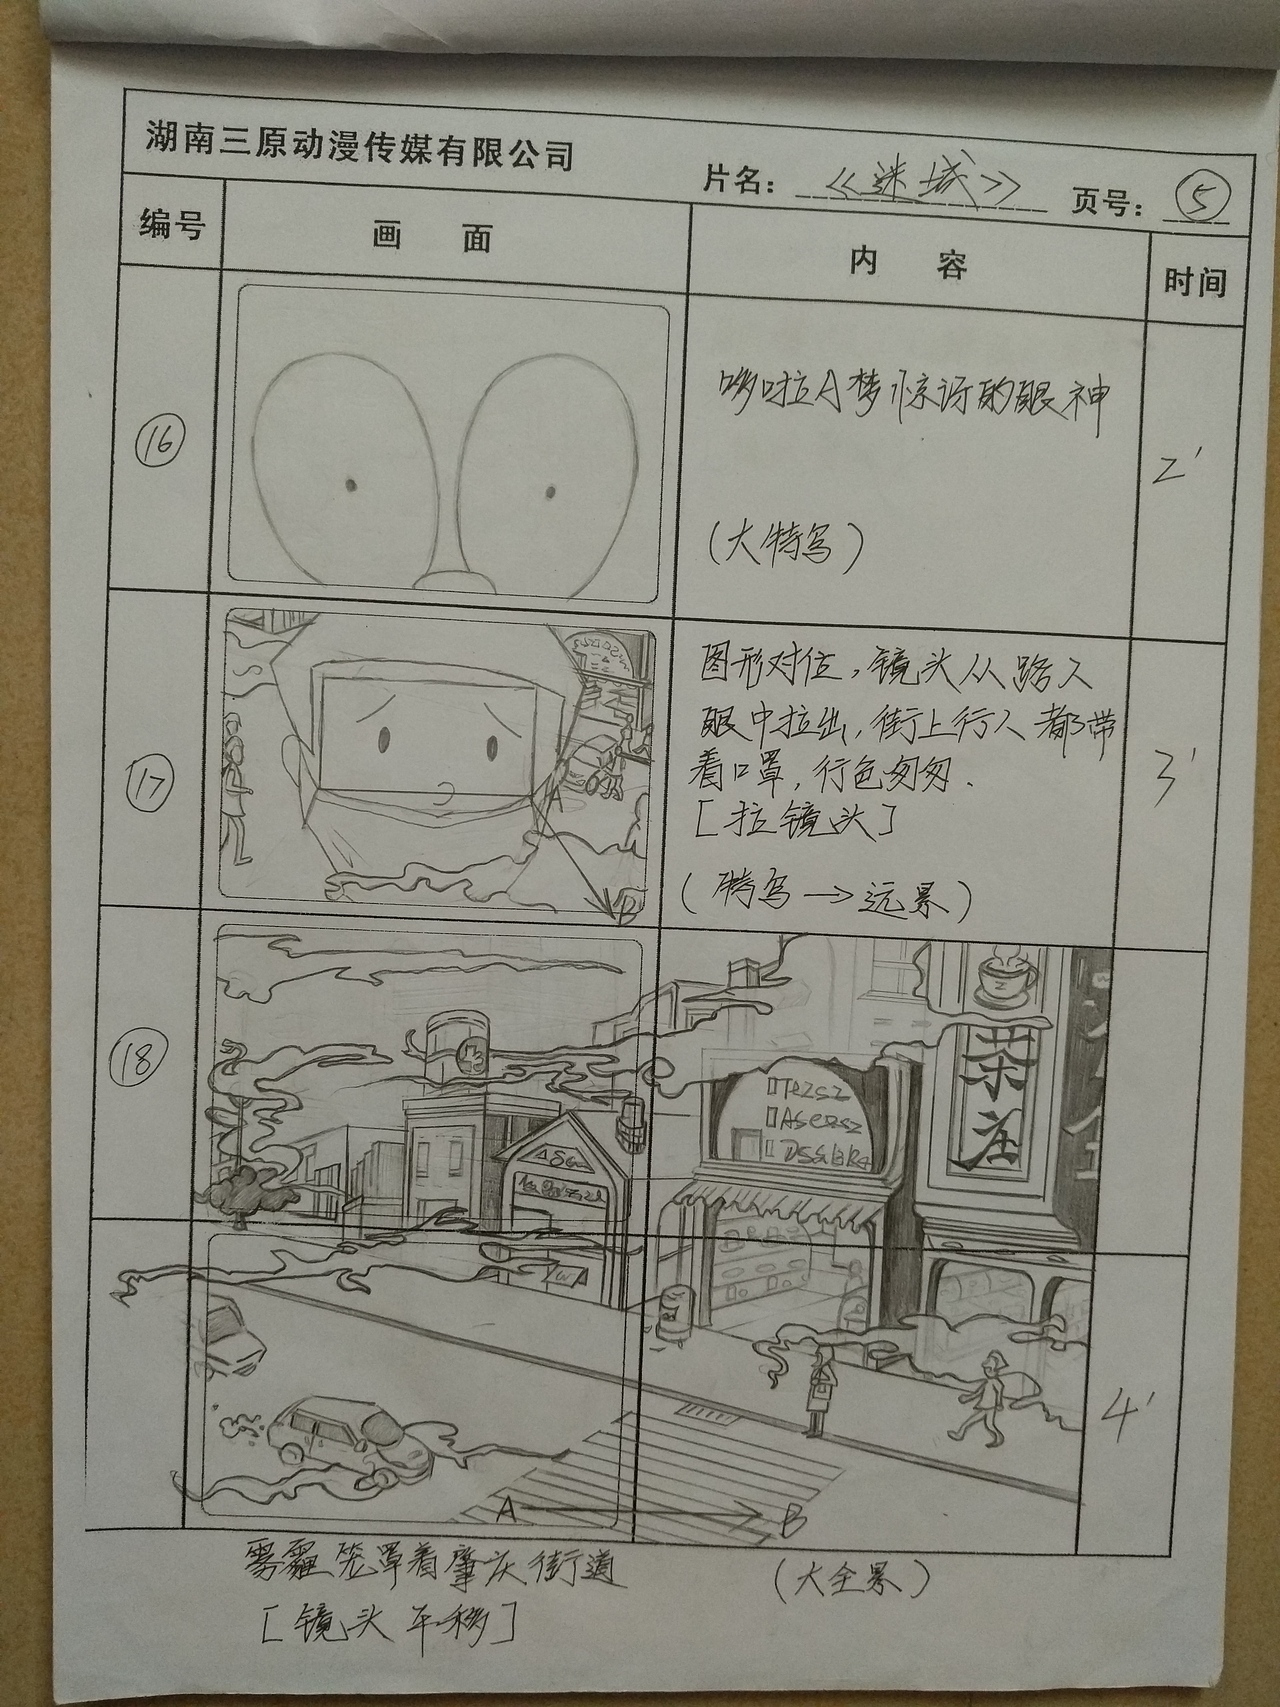 湖南三原动漫传媒有限公司
片名：《迷城》 页号：⑤
编号 画面 内容 时间
⑯
哆啦A梦惊讶的眼神
(大特写)
2'
⑰
图形对位，镜头从路人
眼中拉出，街上行人都带
着口罩，行色匆匆.
[拉镜头]
(特写→远景)
3'
A
B
⑱
茶
庄
4'
A B
雾霾笼罩着肇庆街道
(大全景)
[镜头平移]